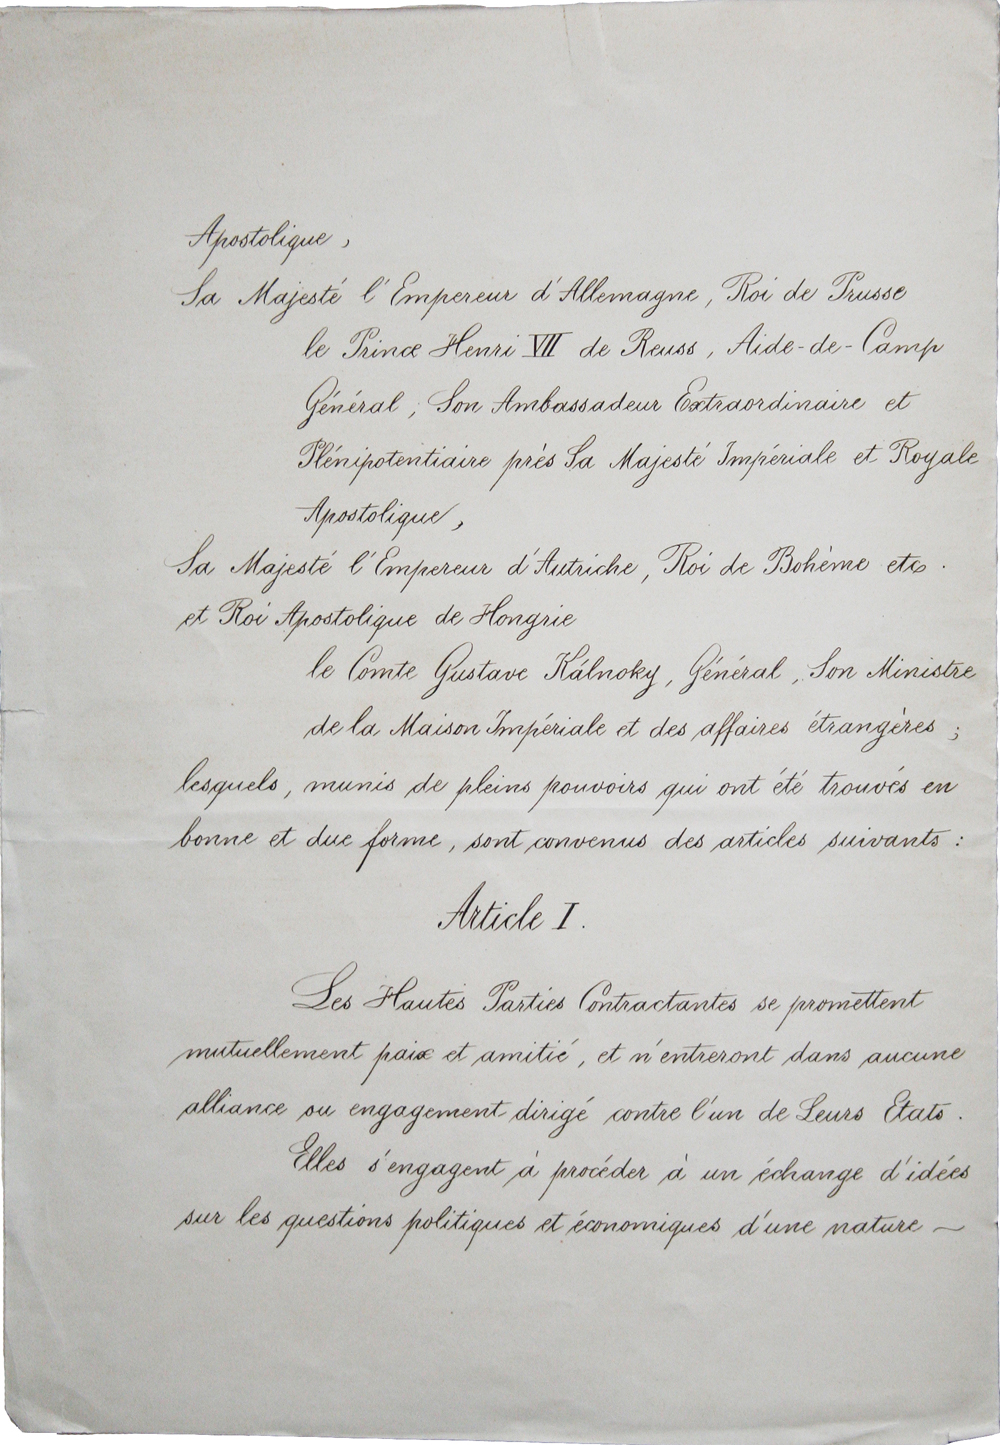 Apostolique,
Sa Majesté l'Empereur d'Allemagne, Roi de Prusse
le Prince Henri VII de Reuss, Aide-de-Camp
Général, Son Ambassadeur Extraordinaire et
Plénipotentiaire près Sa Majesté Impériale et Royale
Apostolique,
Sa Majesté l'Empereur d'Autriche, Roi de Bohème etc.
et Roi Apostolique de Hongrie
le Comte Gustave Kálnoky, Général, Son Ministre
de la Maison Impériale et des affaires étrangères;
lesquels, munis de pleins pouvoirs qui ont été trouvés en
bonne et due forme, sont convenus des articles suivants:
Article I.
Les Hautes Parties Contractantes se promettent
mutuellement paix et amitié, et n'entreront dans aucune
alliance ou engagement dirigé contre l'un de Leurs Etats.
Elles s'engagent à procéder à un échange d'idées
sur les questions politiques et économiques d'une nature —